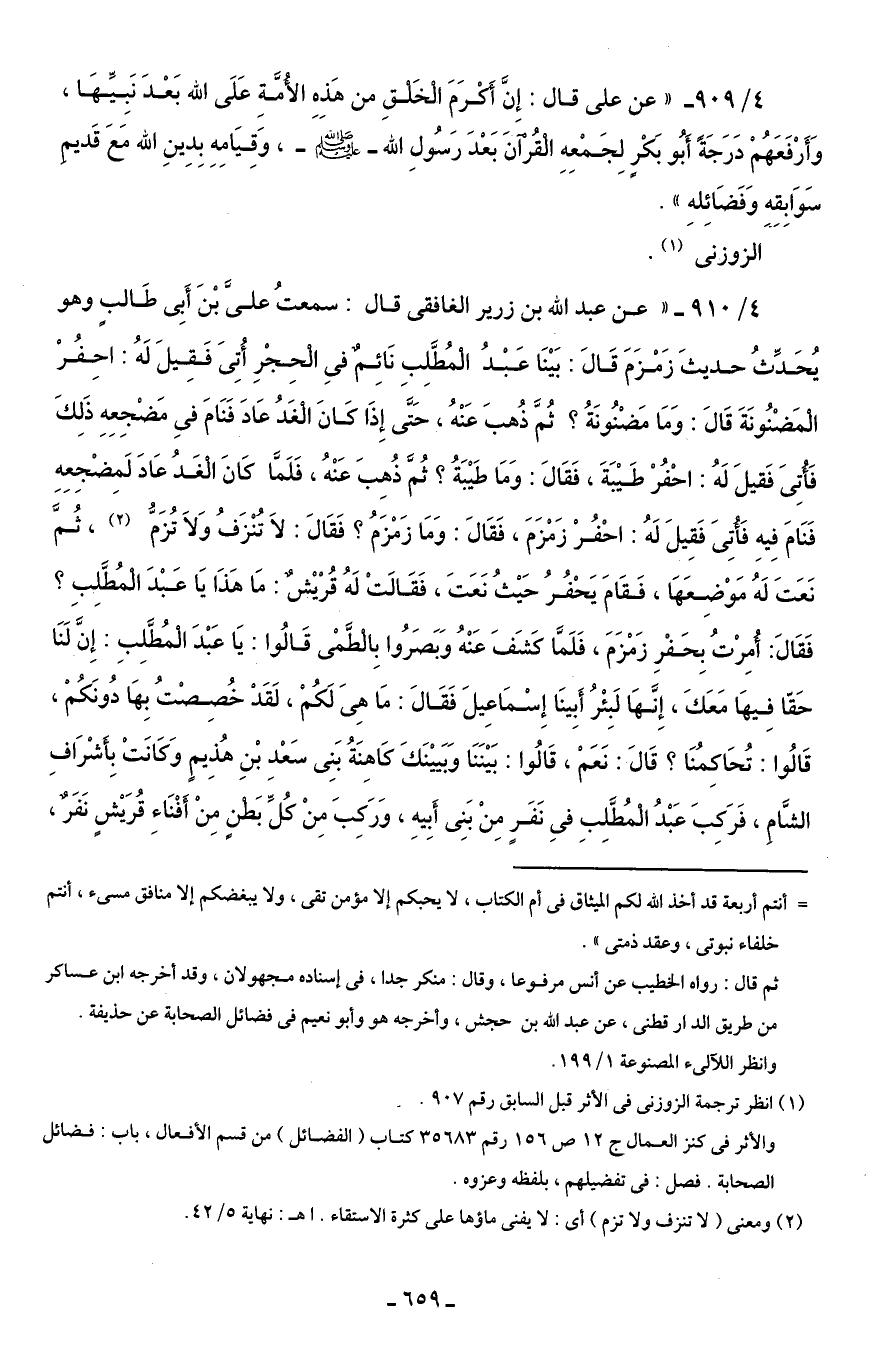 ٤/ ٩٠٩ـ « عن على قال : إنَّ أَكْرَمَ الْخَلْقِ من هَذِهِ الأُمَّةِ عَلَى الله بَعْدَ نَبِيِّهَا ،
وَأَرْفَعَهُمْ دَرَجَةً أَبُو بَكْرٍ لِجَمْعِهِ الْقُرْآنَ بَعْدَ رَسُولِ الله ـ ﷺ ـ ، وَقِيَامِهِ بِدِينِ الله مَعَ قَدِيمِ
سَوَابِقِهِ وَفَضَائِلِهِ » .
الزوزنى (١) .
٤/ ٩١٠ ـ « عـن عبد الله بن زرير الغافقى قـال : سمعتُ علىَّ بْنَ أَبِى طَالبٍ وهو
يُحَدِّثُ حديثَ زَمْزَمَ قَالَ : بَيْنَا عَبْدُ الْمُطَّلِبِ نَائِمٌ فِى الْحِجْرِ أُتِىَ فَقِيلَ لَهُ : احفُرْ
الْمَضْنُونَةَ قَالَ : وَمَا مَضْنُونَةُ ؟ ثُمَّ ذُهِبَ عَنْهُ ، حَتَّى إِذَا كَانَ الْغَدُ عَادَ فَنَامَ فِى مَضْجَعِهِ ذَلِكَ
فَأُتِىَ فَقِيلَ لَهُ : احْفُرْ طَيْبَةَ ، فَقَالَ : وَمَا طَيْبَةُ ؟ ثُمَّ ذُهِبَ عَنْهُ ، فَلَمَّا كَانَ الْغَدُ عَادَ لِمَضْجَعِهِ
فَنَامَ فِيهِ فَأُتِىَ فَقِيلَ لَهُ : احْفُرْ زَمْزَمَ ، فَقَالَ : وَمَا زَمْزَمُ ؟ فَقَالَ : لاَ تُنْزَفُ وَلاَ تُزَمُّ (٢) ، ثُمَّ
نَعَتَ لَهُ مَوْضِعَهَا ، فَقَامَ يَحْفُرُ حَيْثُ نَعَتَ ، فَقَالَتْ لَهُ قُرَيْشٌ : مَا هَذَا يَا عَبْدَ الْمُطَّلِبِ ؟
فَقَالَ: أُمِرْتُ بِحَفْرِ زَمْزَمَ ، فَلَمَّا كَشَفَ عَنْهُ وَبَصَرُوا بِالطَّمْىِ قَالُوا : يَا عَبْدَ الْمُطَّلِبِ : إِنَّ لَنَا
حَقّا فِيهَا مَعَكَ ، إِنَّهَا لَبِئْرُ أَبِينَا إِسْمَاعِيلَ فَقَالَ : مَا هِىَ لَكُمْ ، لَقَدْ خُصِصْتُ بِهَا دُونَكُمْ ،
قَالُوا : تُحَاكِمُنَا ؟ قَالَ : نَعَمْ ، قَالُوا : بَيْنَنَا وَبَيْنَكَ كَاهِنَةُ بَنِى سَعْدِ بْنِ هُذَيمٍ وَكَانَتْ بِأَشْرَافِ
الشَّامِ ، فَرَكِبَ عَبْدُ الْمُطَّلِبِ فِى نَفَرٍ مِنْ بَنِى أَبِيهِ ، وَرَكِبَ مِنْ كُلِّ بَطْنٍ مِنْ أَفْنَاءِ قُرَيْشٍ نَفَرٌ ،
= أنتم أربعة قد أخذ الله لكم الميثاق فى أم الكتاب ، لا يحبكم إلا مؤمن تقى ، ولا يبغضكم إلا منافق مسىء ، أنتم
خلفاء نبوتى ، وعقد ذمتى » .
ثم قال : رواه الخطيب عن أنس مرفوعا ، وقال : منكر جدا ، فى إسناده مجهولان ، وقد أخرجه ابن عساكر
من طريق الدار قطنى ، عن عبد الله بن حجش ، وأخرجه هو وأبو نعيم فى فضائل الصحابة عن حذيفة .
وانظر اللآلىء المصنوعة ١/ ١٩٩.
(١) انظر ترجمة الزوزنى فى الأثر قبل السابق رقم ٩٠٧ .
والأثر فى كنز العمال ج ١٢ ص ١٥٦ رقم ٣٥٦٨٣ كتاب ( الفضائل ) من قسم الأفعال ، باب : فضائل
الصحابة . فصل : فى تفضيلهم ، بلفظه وعزوه .
(٢) ومعنى ( لا تنزف ولا تزم ) أى : لا يفنى ماؤها على كثرة الاستقاء . ا هـ : نهاية ٥/ ٤٢.
ـ ٦٥٩ ـ